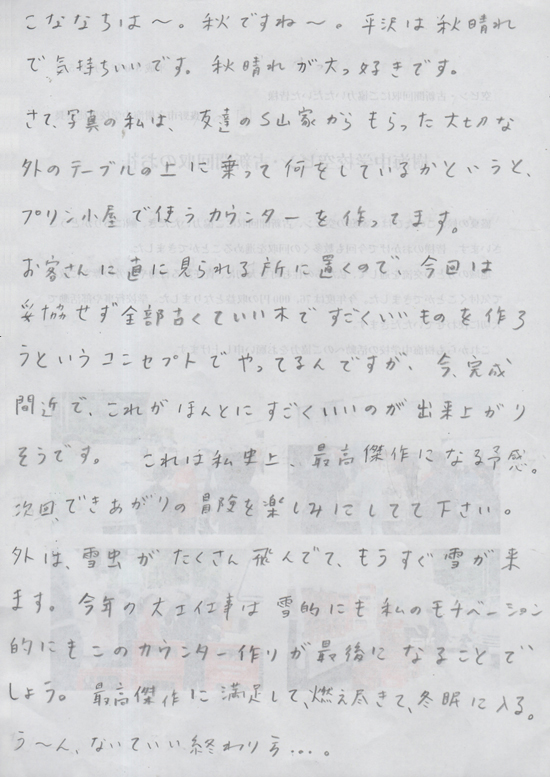 こななちは〜。秋ですね〜。平沢は秋晴れ
で気持ちいいです。秋晴れが大っ好きです。
さて、写真の私は、友達のS山家からもらった大切な
外のテーブルの上に乗って何をしているかというと、
プリン小屋で使うカウンターを作ってます。
お客さんに直に見られる所に置くので、今回は
妥協せず全部古くていい木ですごくいいものを作ろ
うというコンセプトでやってるんですが、今、完成
間近で、これがほんとにすごくいいのが出来上がり
そうです。 これは私史上、最高傑作になる予感。
次回、できあがりの冒険を楽しみにしてて下さい。
外は、雪虫がたくさん飛んでて、もうすぐ雪が来
ます。今年の大工仕事は雪的にも私のモチベーション
的にもこのカウンター作りが最後になることで
しょう。最高傑作に満足して、燃え尽きて、冬眠に入る。
う〜ん、ないていい終わり方…。